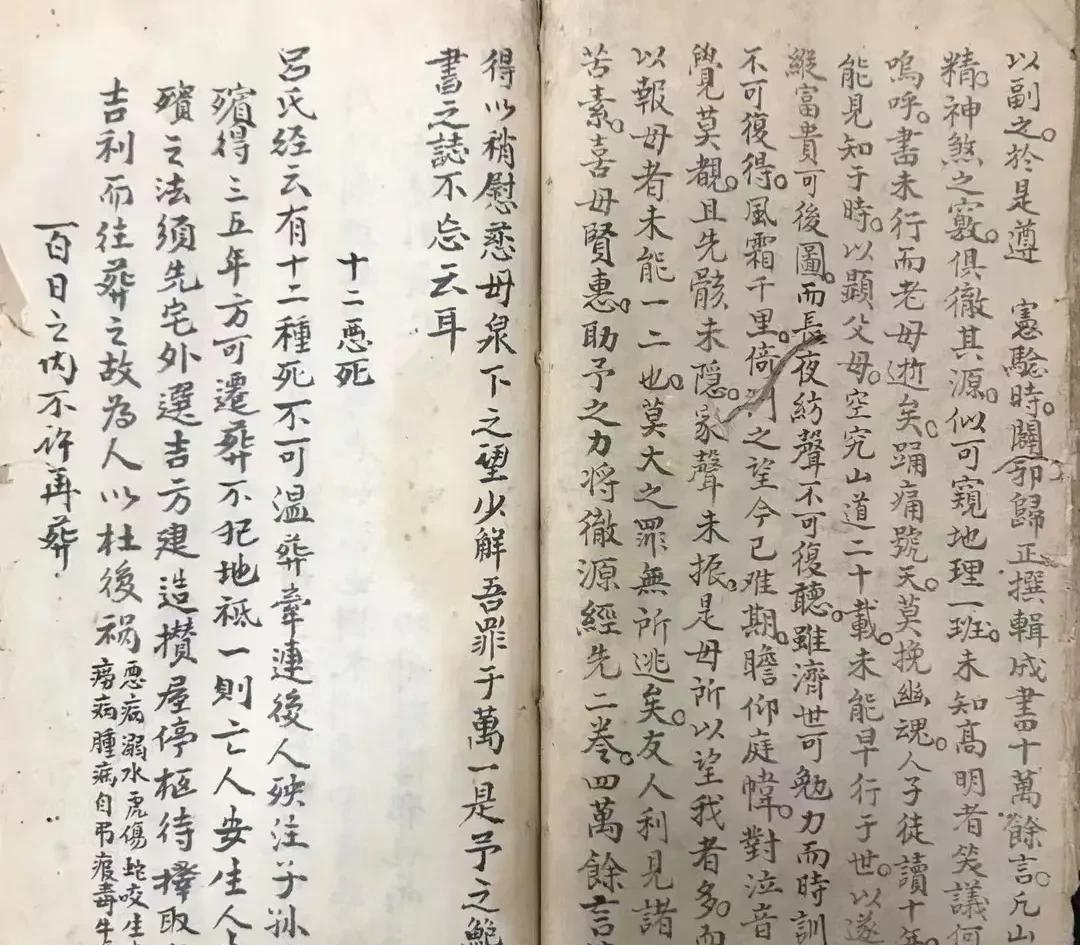 以副之。於是遵 憲驗時。闢邪歸正撰輯成書四十萬餘言。凡山
精。神煞之竅。俱徹其源。似可窺地理一班。未知高明者笑議何
嗚呼。書未行而老母逝矣。踊痛號天。莫挽幽魂。人子徒讀十年
能見知于時。以顯父母。空究山道二十載。未能早行于世。以遂
縱富貴可後圖。而長夜紡聲不可復聽。雖濟世可勉力而時訓
不可復得。風霜千里。倚門之望今已难期。瞻仰庭幃。對泣音
覺莫覩。且先骸未隱。家聲未振。是毋所以望我者多。而
以報母者未能一二也。莫大之罪無所逃矣。友人利見諸
苦素。喜毋賢惠。助予之力将徹源經先二卷。四萬餘言
得以稍慰慈毋泉下之望少解吾罪于萬一是予之鮑
書之誌不忘云耳
十二恶死
呂氏经云有十二種死不可温葬牽連後人殃注子孫
殯得三五年方可遷葬不犯地祗一則亡人安生人
殯之法須先宅外選吉方建造攢屋停柩待擇取
吉利而往葬之故為人以杜後祸
恶病溺水虎傷蛇咬生
痨病腫病自吊瘦毒牛
一百日之内不许再葬